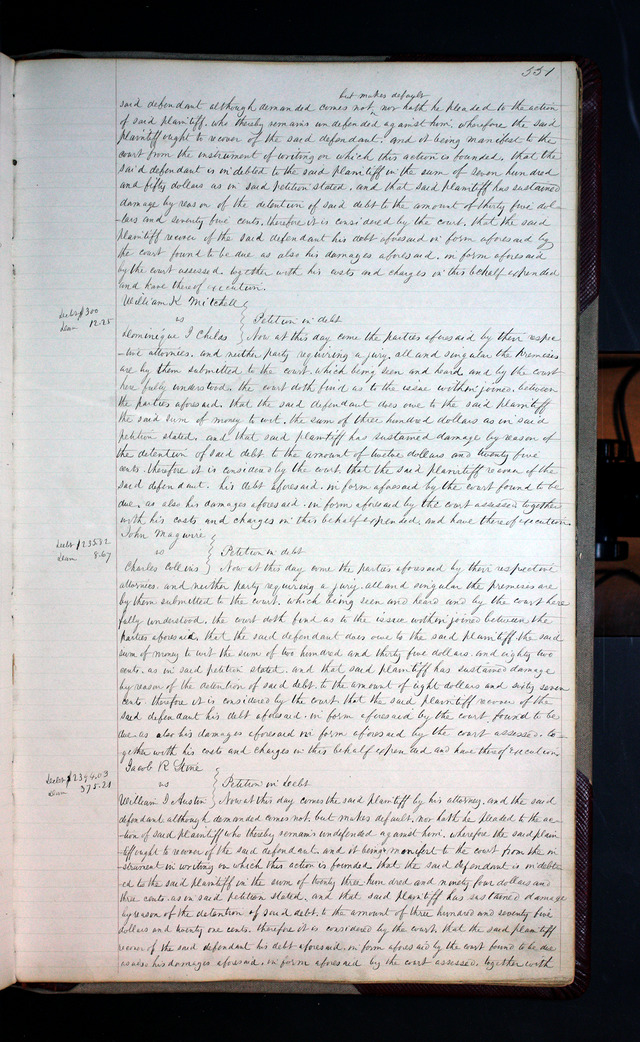 551
but makes default
said defendant although demanded comes not, nor hath he pleaded to the action
of said plaintiff. who thereby remains undefended against him. wherefore the said
plaintiff ought to recover of the said defendant. and it being manifest to the
court from the instrument of writing on which this action is founded. that the
said defendant is indebted to the said plaintiff in the sum of seven hundred
and fifty dollars as in said petition stated. and that said plaintiff has sustained
damage by reason of the detention of said debt to the amount of thirty five dol-
lars and seventy five cents. therefore it is considered by the court. that the said
plaintiff recover of the said defendant his debt aforesaid in form aforesaid by
the court found to be due as also his damages aforesaid. in form aforesaid
by the court assessed. together with his costs and charges in this behalf expended
and have thereof execution.
William K Mitchell
Debt $300
vs Petition in debt
Dam 12.25
Dominique I Childs Now at this day come the parties aforesaid by their respec
-tive attornies. and neither party requiring a jury. all and singular the premises
are by them submitted to the court. which being seen and heard and by the court
here fully understood. the court doth find as to the issue within joined. between
the parties aforesaid. that the said defendant does owe to the said plaintiff
the said sum of money to wit. the sum of three hundred dollars as in said
petition stated. and that said plaintiff has sustained damage by reason of
the detention of said debt to the amount of twelve dollars and twenty five
cents. therefore it is considered by the court. that the said plaintiff recover of the
said defendant. his debt aforesaid. in form aforesaid by the court found to be
due. as also his damages aforesaid. in form aforesaid by the court assessed together
with his costs and charges in this behalf expended, and have thereof execution
John Maguire
Debt $235.82
vs Petition in debt
Dam 8.67
Charles Collins Now at this day come the parties aforesaid by their respective
attornies. and neither party requiring a jury. all and singular the premises are
by them submitted to the court. which being seen and heard and by the court here
fully understood. the court doth find as to the issue within joined between the
parties aforesaid, that the said defendant does owe to the said plaintiff the said
sum of money to wit the sum of two hundred and thirty five dollars. and eighty two
cents. as in said petition stated. and that said plaintiff has sustained damage
by reason of the detention of said debt. to the amount of eight dollars and sixty seven
cents. therefore it is considered by the court that the said plaintiff recover of the
said defendant his debt aforesaid. in form aforesaid by the court found to be
due as also his damages aforesaid in form aforesaid by the court assessed. to-
gether with his costs and charges in this behalf expended and have thereof execution
Jacob R Stine
Debt $2394.03
vs Petition in Debt
Dam 375.21
William I Austin Now at this day comes the said plaintiff by his attorney. and the said
defendant although demanded comes not. but makes default. nor hath he pleaded to the ac-
tion of said plaintiff who thereby remains undefended against him. wherefore the said plain-
tiff ought to recover of the said defendant. and it being manifest to the court from the in
strument in writing on which this action is founded. that the said defendant is indebt-
ed to the said plaintiff in the sum of twenty three hundred. and ninety four dollars and
three cents. as in said petition stated. and that said plaintiff has sustained damage
by reason of the detention of said debt. to the amount of three hundred and seventy five
dollars and twenty one cents. therefore it is considered by the court. that the said plaintiff
recover of the said defendant his debt aforesaid. in form aforesaid by the court found to be due
as also his damages aforesaid. in form aforesaid by the court assessed. together with